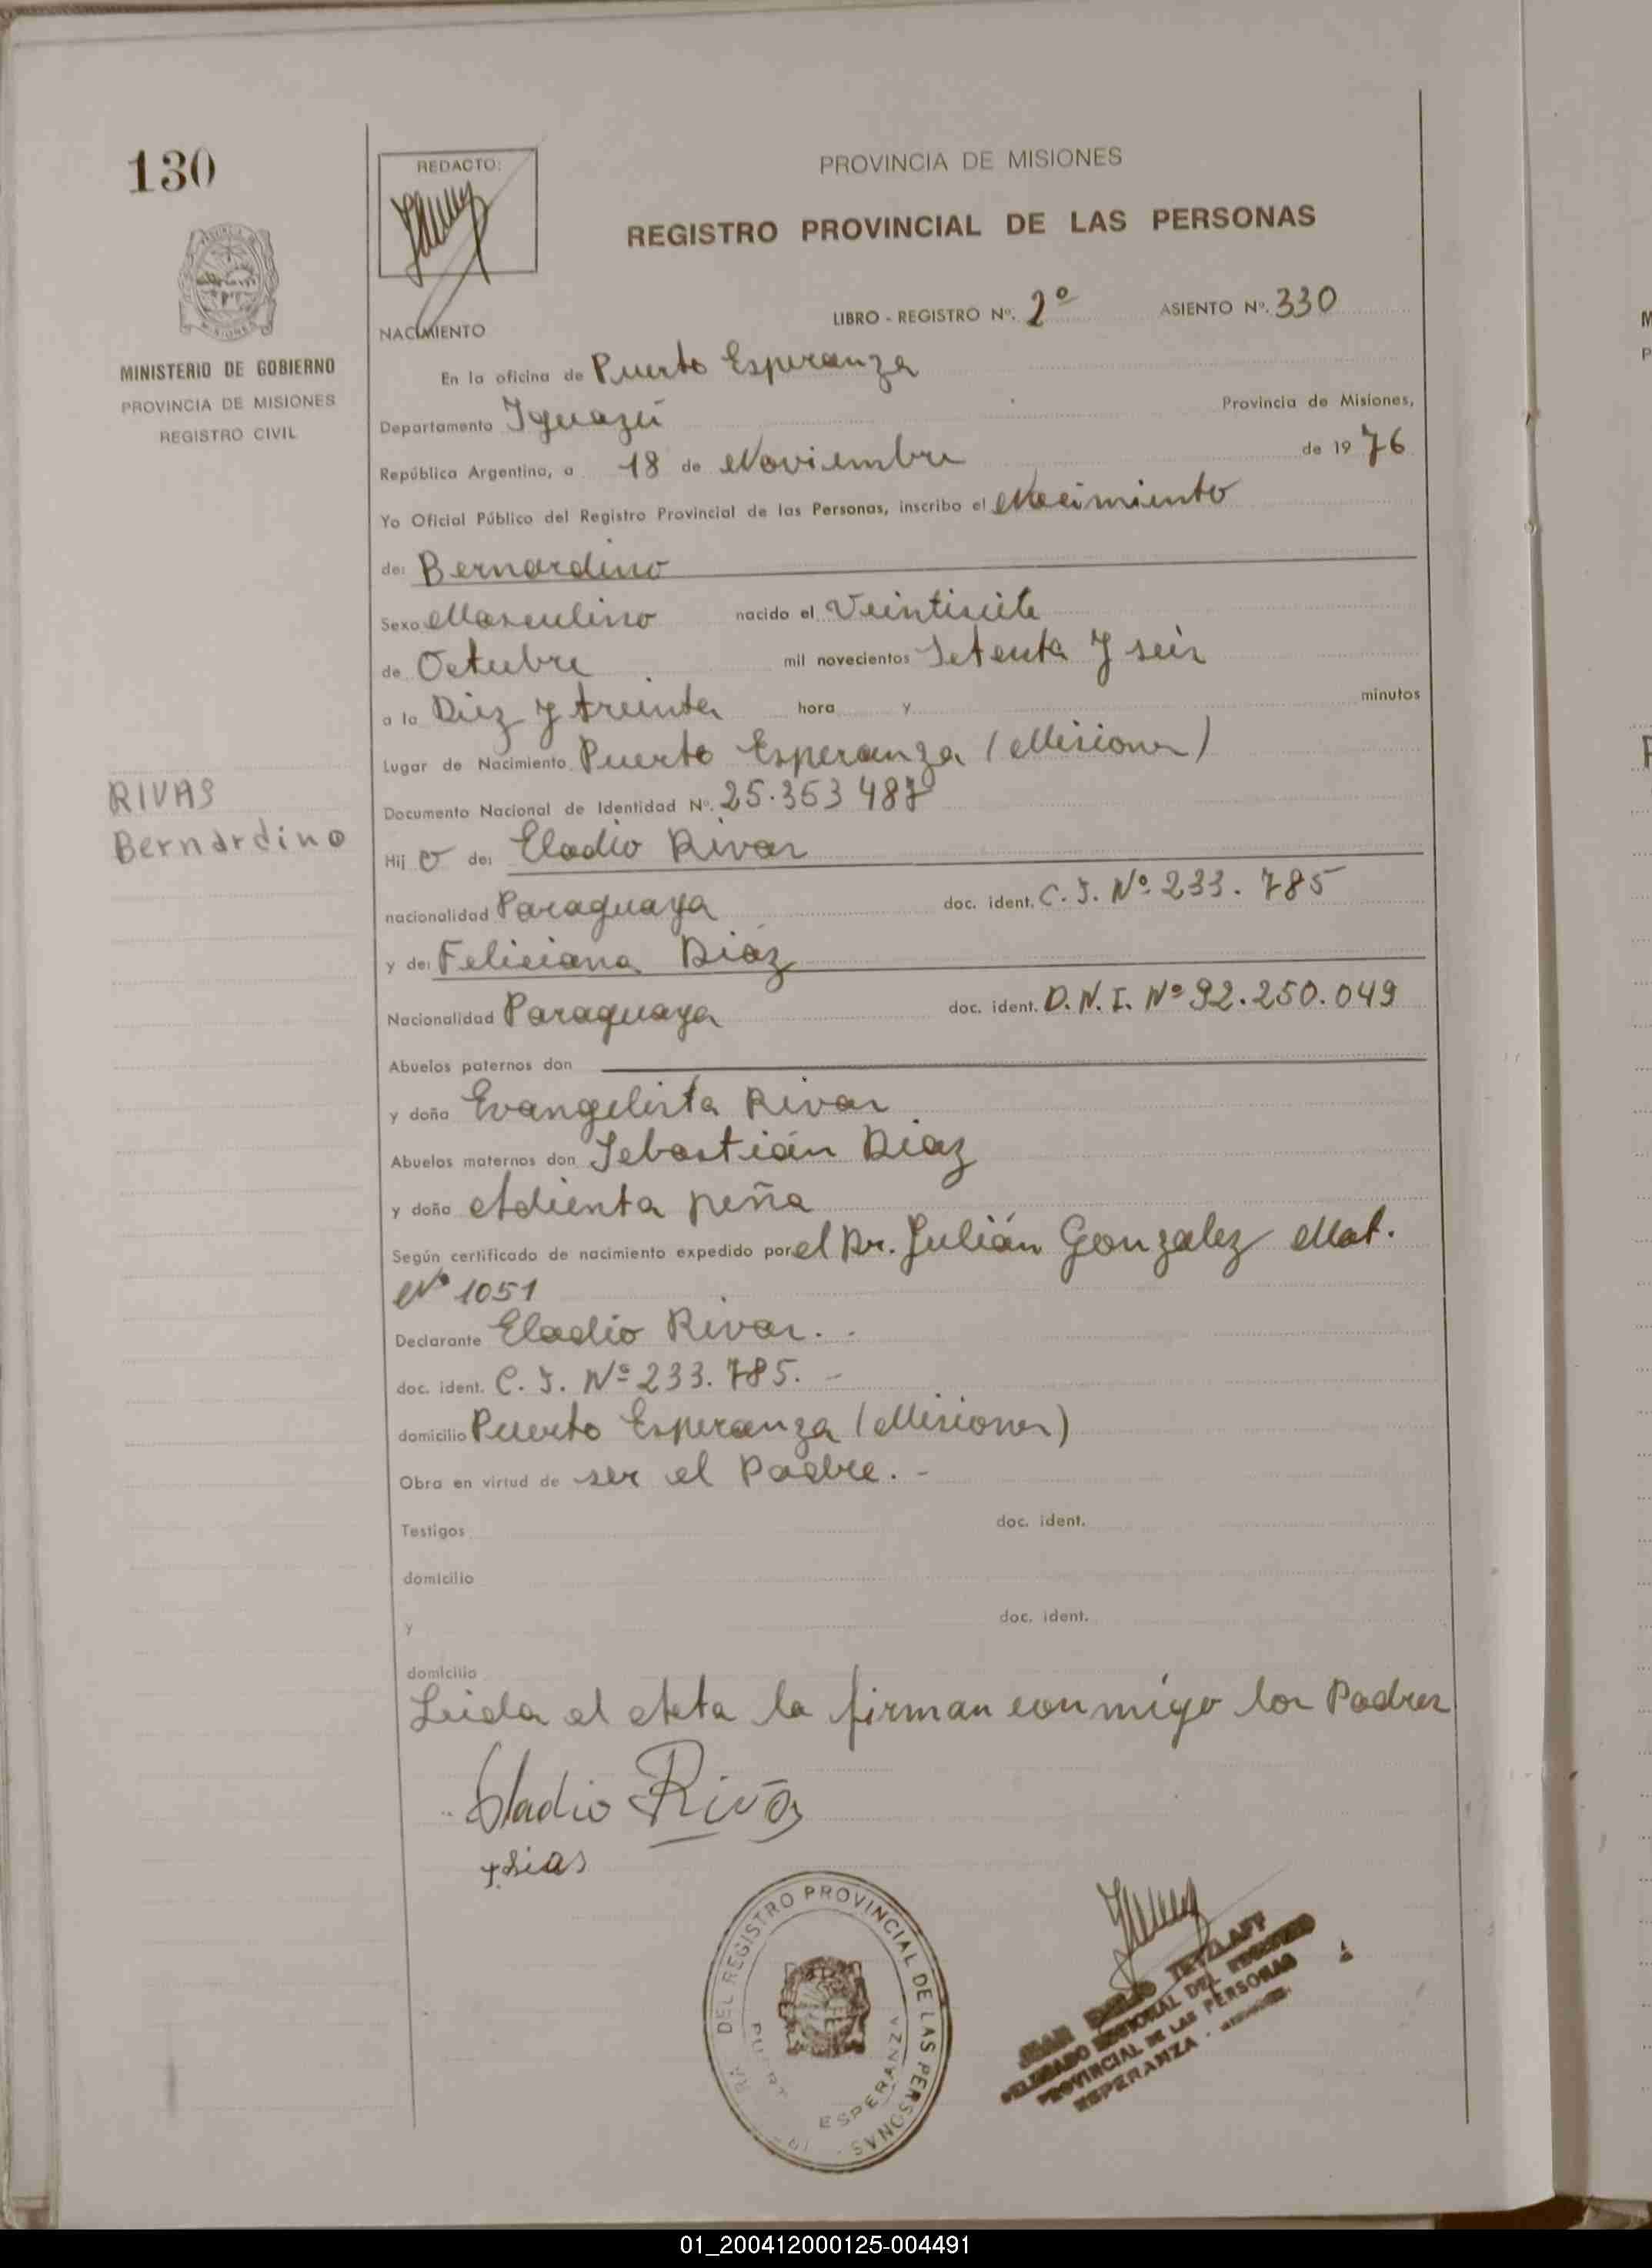 130
REDACTO:
PROVINCIA DE MISIONES
REGISTRO PROVINCIAL DE LAS PERSONAS
LIBRO - REGISTRO Nº. 2º ASIENTO Nº. 330
NACIMIENTO
MINISTERIO DE GOBIERNO
PROVINCIA DE MISIONES
REGISTRO CIVIL
En la oficina de Puerto Esperanza
Departamento Iguazú Provincia de Misiones,
República Argentina, a 18 de Noviembre de 1976
Yo Oficial Público del Registro Provincial de las Personas, inscribo el Nacimiento
de: Bernardino
Sexo Masculino nacido el Veintisiete
de Octubre mil novecientos Setenta y seis
a la Diez y treinta hora y minutos
Lugar de Nacimiento Puerto Esperanza (Misiones)
RIVAS
Bernardino
Documento Nacional de Identidad Nº. 25.353 487
Hij o de: Eladio Rivas
nacionalidad Paraguaya doc. ident. C. I. Nº 233. 785
y de: Feliciana Diáz
Nacionalidad Paraguaya doc. ident. D. N. I. Nº 92.250.049
Abuelos paternos don
y doña Evangelista Rivas
Abuelos maternos don Sebastián Diaz
y doña peña
Según certificado de nacimiento expedido por el Dr. Julián Gonzalez Mat.
Nº 1051
Declarante Eladio Rivas. -
doc. ident. C. I. Nº 233. 785. -
domicilio Puerto Esperanza (Misiones)
Obra en virtud de ser el Padre. -
Testigos doc. ident.
domicilio
y doc. ident.
domicilio
Leida el Acta la firman conmigo los Padres
Eladio Rivas
DEL REGISTRO PROVINCIAL DE LAS PERSONAS
ESPERANZA
JUAN EMILIO TETZLAFF
DELEGADO REGIONAL DEL REGISTRO
PROVINCIAL DE LAS PERSONAS
ESPERANZA -
01_200412000125-004491